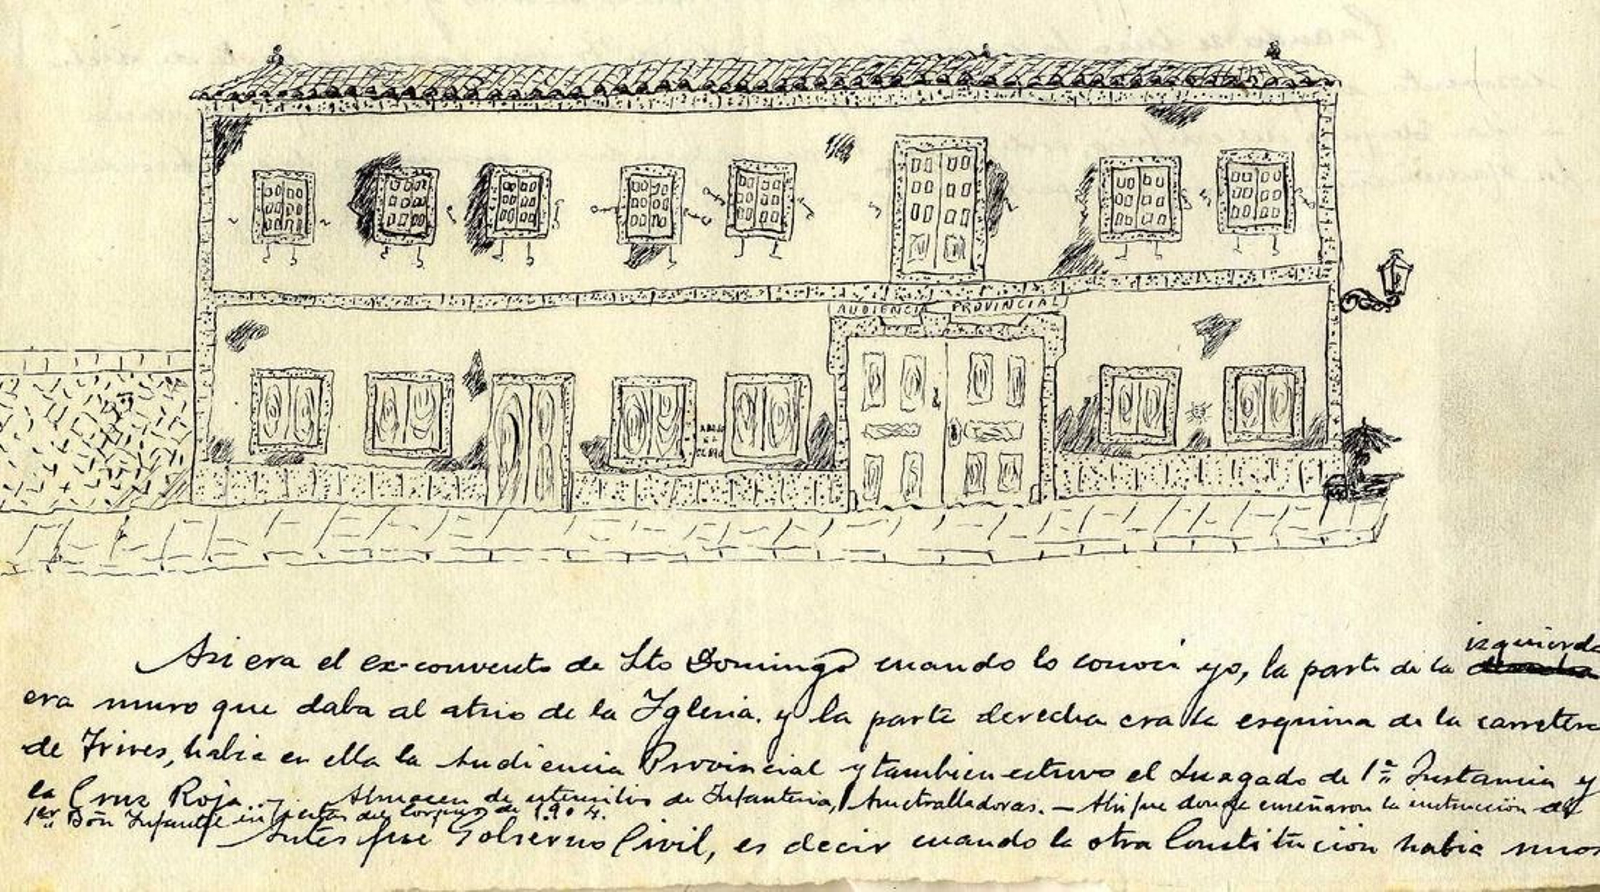 AUDIENCIA PROVINCIAL
Asi era el ex-convento de Sto Domingo cuando lo conocí yo, la parte de la izquierda
era muro que daba al atrio de la Iglesia. y la parte derecha era la esquina de la carretera
de Trives, habia en ella la Audiencia Provincial y tambien estuvo el Juzgado de 1ª Instancia y
la Cruz Roja. - Almacen de utensilios de Infanteria, Ametralladoras. - Ahi fue donde enseñaron la instrucción al
1er Bón Infantil en fiestas del Corpus de 1904.
Antes fué Gobierno Civil, es decir cuando la otra Constitución habia unos